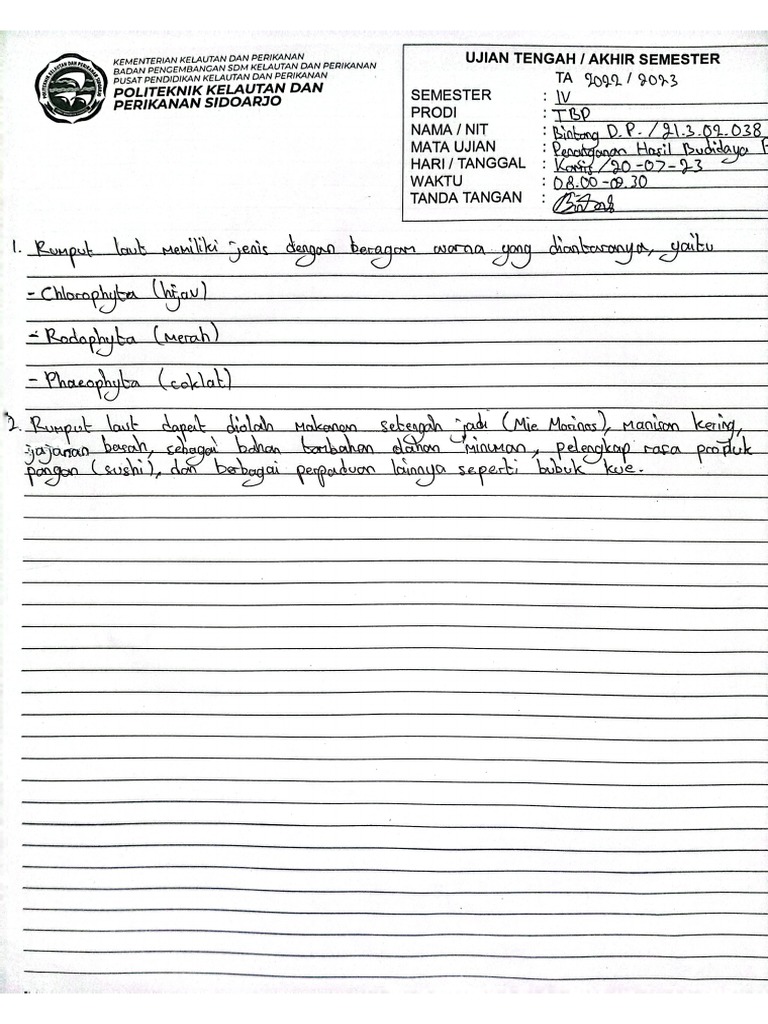 KEMENTERIAN KELAUTAN DAN PERIKANAN
BADAN PENGEMBANGAN SDM KELAUTAN DAN PERIKANAN
PUSAT PENDIDIKAN KELAUTAN DAN PERIKANAN
POLITEKNIK KELAUTAN DAN
PERIKANAN SIDOARJO
UJIAN TENGAH / AKHIR SEMESTER
TA 2022 / 2023
SEMESTER : IV
PRODI : TBP
NAMA / NIT : Bintang D.P. / 21.3.02.038
MATA UJIAN : Penanganan Hasil Budidaya
HARI / TANGGAL : Kamis / 20-07-23
WAKTU : 08.00 - 09.30
TANDA TANGAN :
1. Rumput laut memiliki jenis dengan beragam warna yang diantaranya, yaitu
- Chlorophyta (hijau)
- Rodophyta (merah)
- Phaeophyta (coklat)
2. Rumput laut dapat diolah makanan setengah jadi (Mie Marinas), manisan kering,
jajanan basah, sebagai bahan tambahan olahan minuman, pelengkap rasa produk
pangan (sushi), dan berbagai perpaduan lainnya seperti bubuk kue.